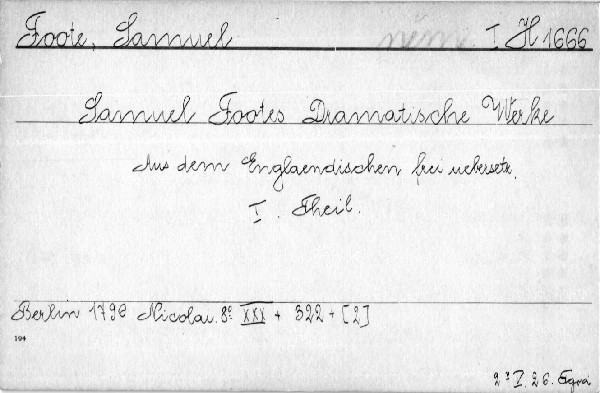 Foote, Samuel I H 1666
Samuel Footes Dramatische Werke
Aus dem Englaendischen frei uebersetz.
I. Theil.
Berlin 1796 Nicolai. 8° XXX + 322 + [2]
194